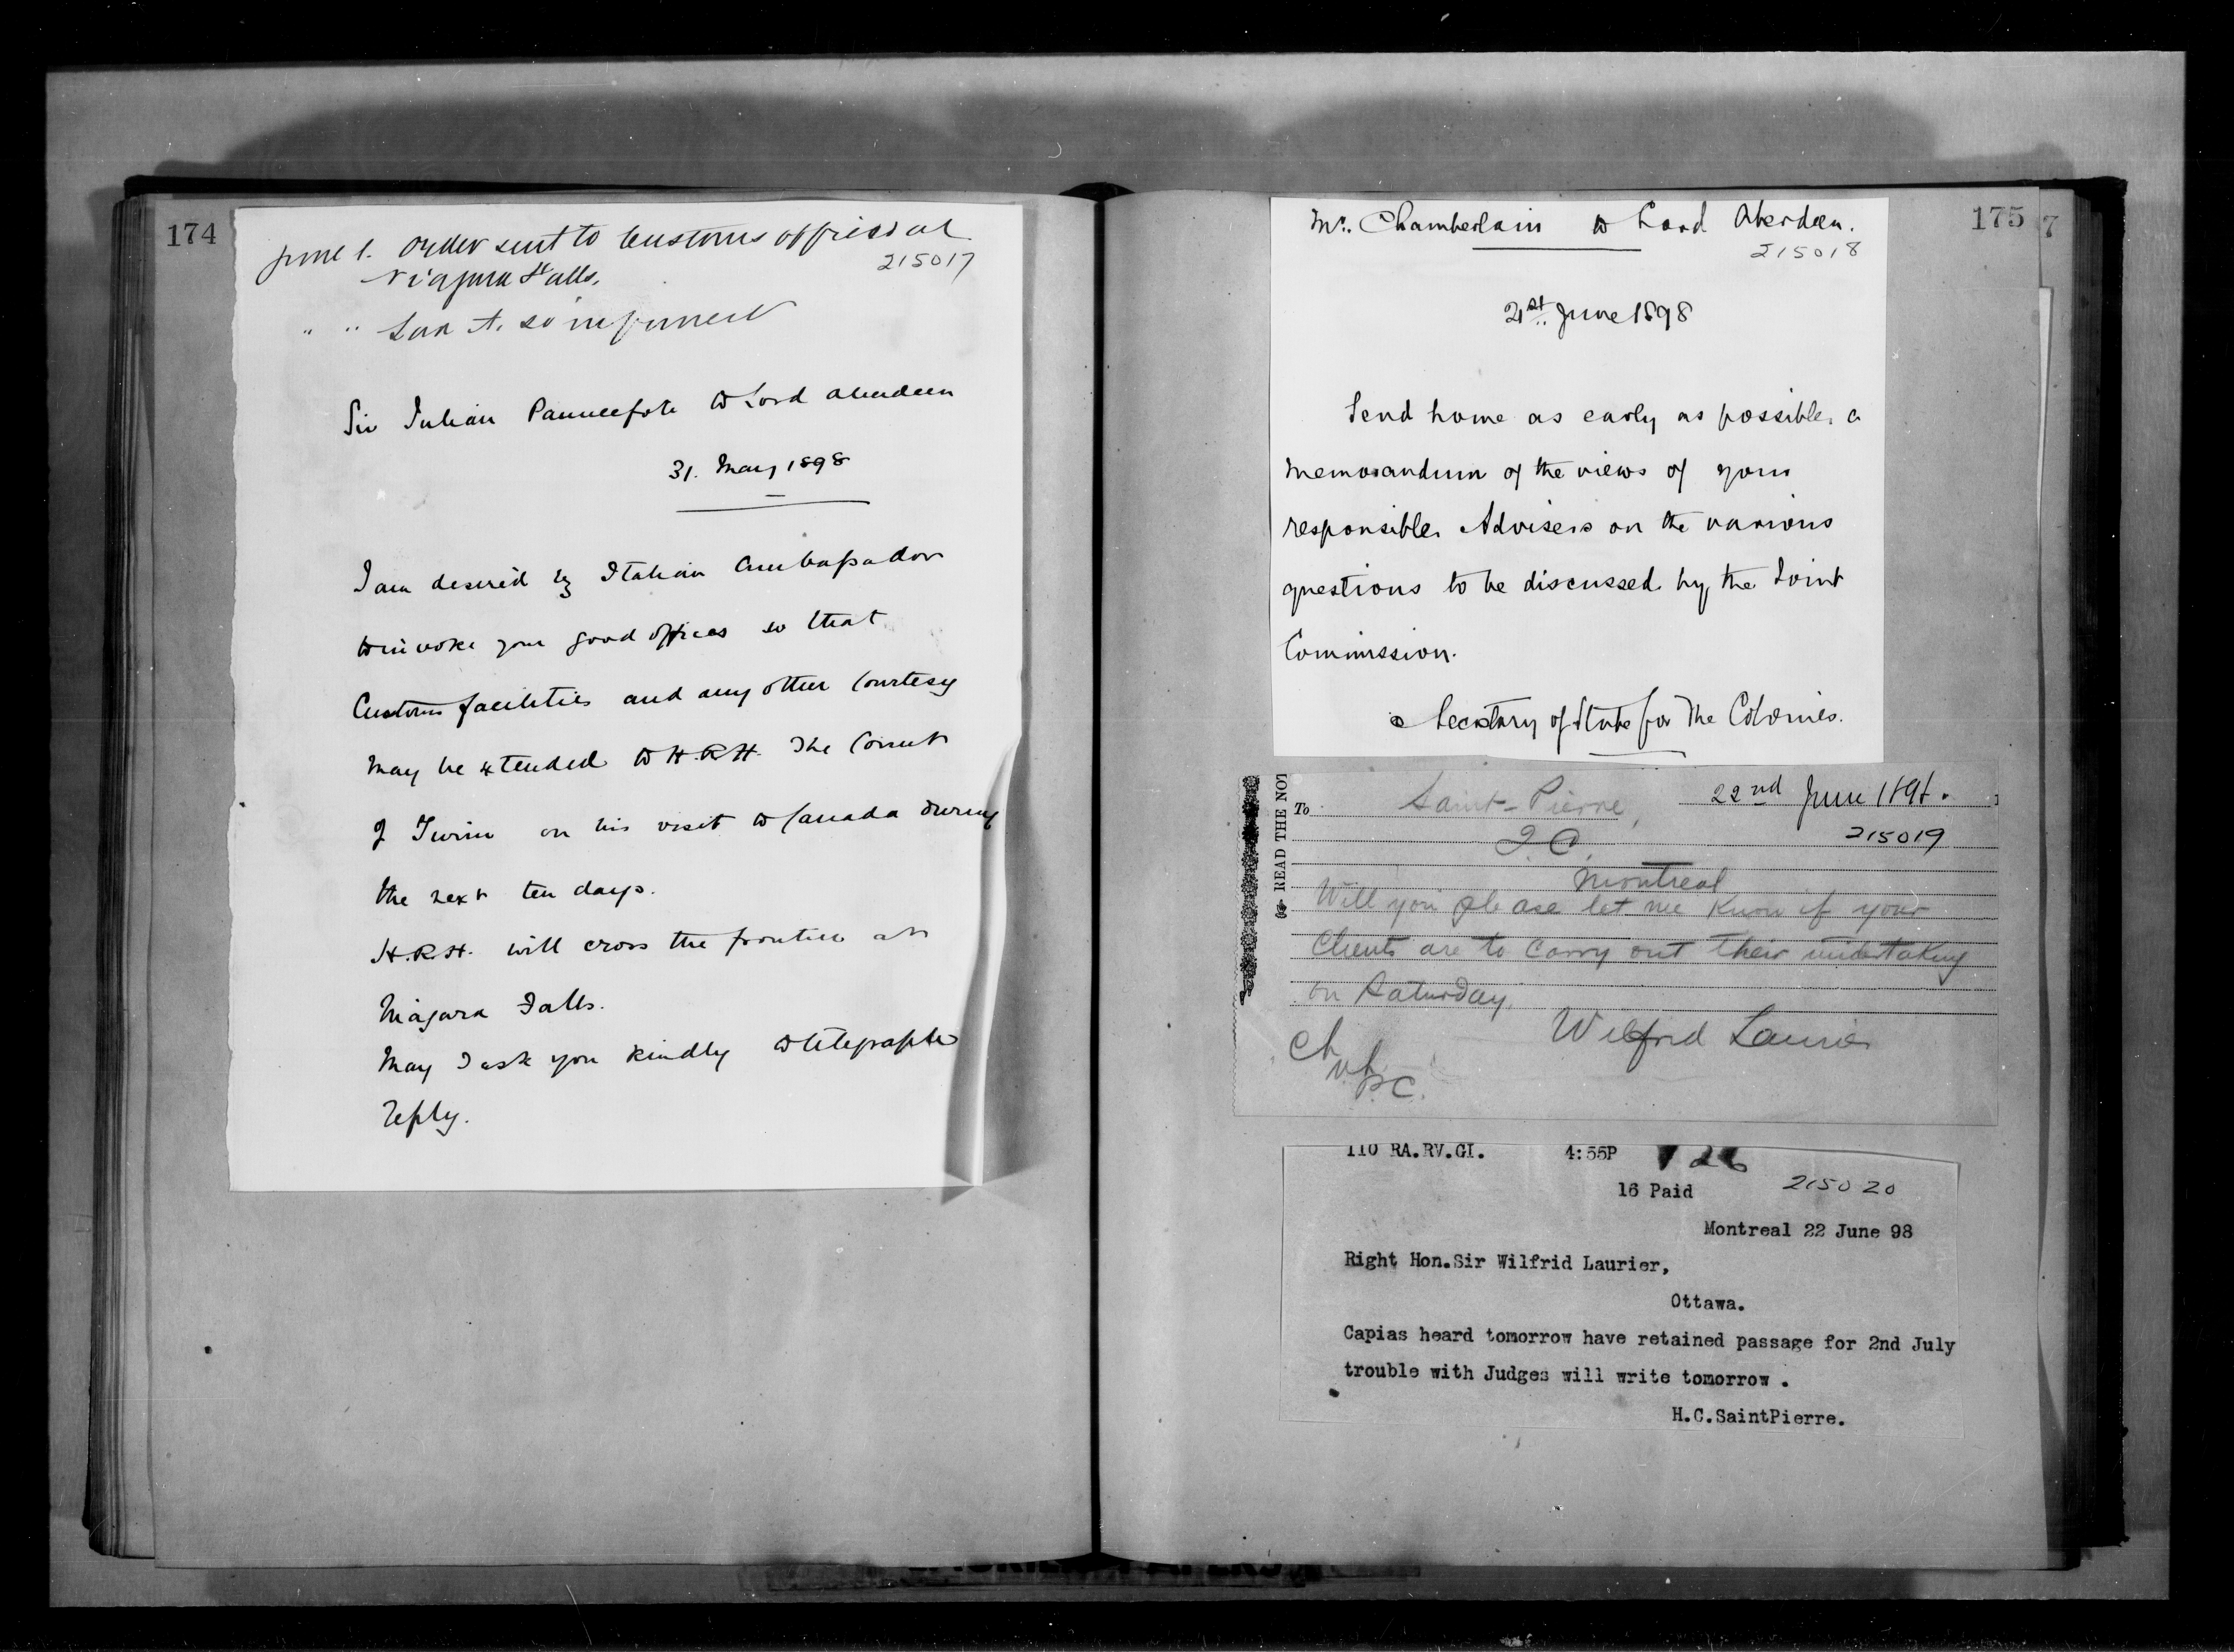 174
June 1. Order sent to Customs officer at
Niagara Falls.
215017
" " Lord A. so informed
Sir Julian Pauncefote to Lord Aberdeen
31. May 1898
I am desired by Italian Ambassador
to invoke your good offices so that
Customs facilities and any other courtesy
may be extended to H.R.H. The Count
of Turin on his visit to Canada during
the next ten days.
H.R.H. will cross the frontier at
Niagara Falls.
May I ask you kindly to telegraph
reply.
175
7
Mr. Chamberlain to Lord Aberdeen.
215018
21st June 1898
Send home as early as possible a
memorandum of the views of your
responsible Advisers on the various
questions to be discussed by the Joint
Commission.
Secretary of State for The Colonies.
READ THE NOT
To Saint-Pierre, 22nd June 1898.
Q.C. 215019
Montreal
Will you please let me know if your
Clients are to carry out their undertaking
on Saturday.
Wilfrid Laurier
Ch
P.C.
110 RA.RV.GI. 4:55P 26
16 Paid 215020
Montreal 22 June 98
Right Hon.Sir Wilfrid Laurier,
Ottawa.
Capias heard tomorrow have retained passage for 2nd July
trouble with Judges will write tomorrow .
H.C.SaintPierre.